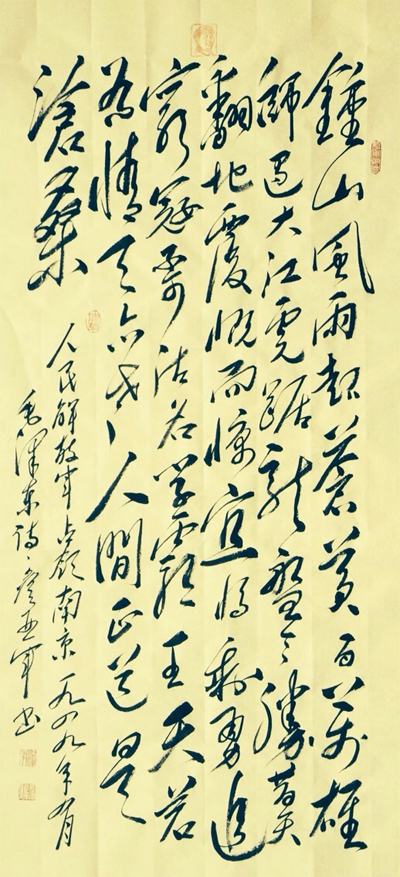 鍾山風雨起蒼黄百万雄
師過大江虎踞龍盤今勝昔天
翻地覆慨而慷宜將剩勇追
窮寇不可沽名学霸王天若
有情天亦老人間正道是
滄桑
人民解放軍占領南京一九四九年月
毛澤東詩亚军书